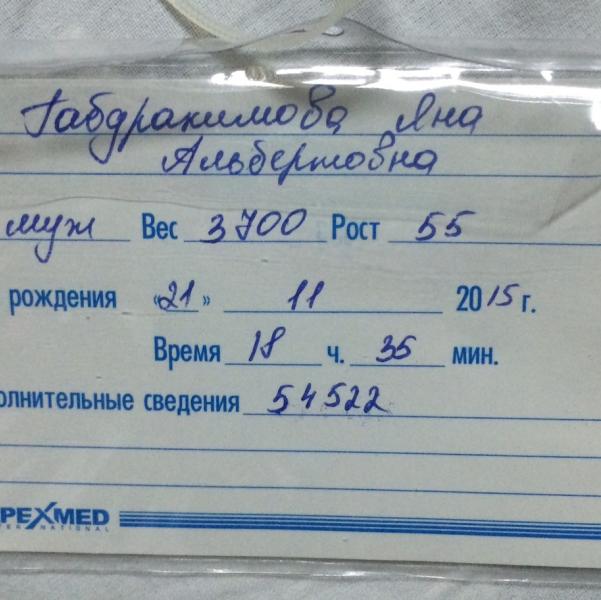 Габдрахимова Яна
Альбертовна
муж Вес 3700 Рост 55
рождения «21» 11 2015 г.
Время 18 ч. 35 мин.
олнительные сведения 54522
PEXMED
INTERNATIONAL